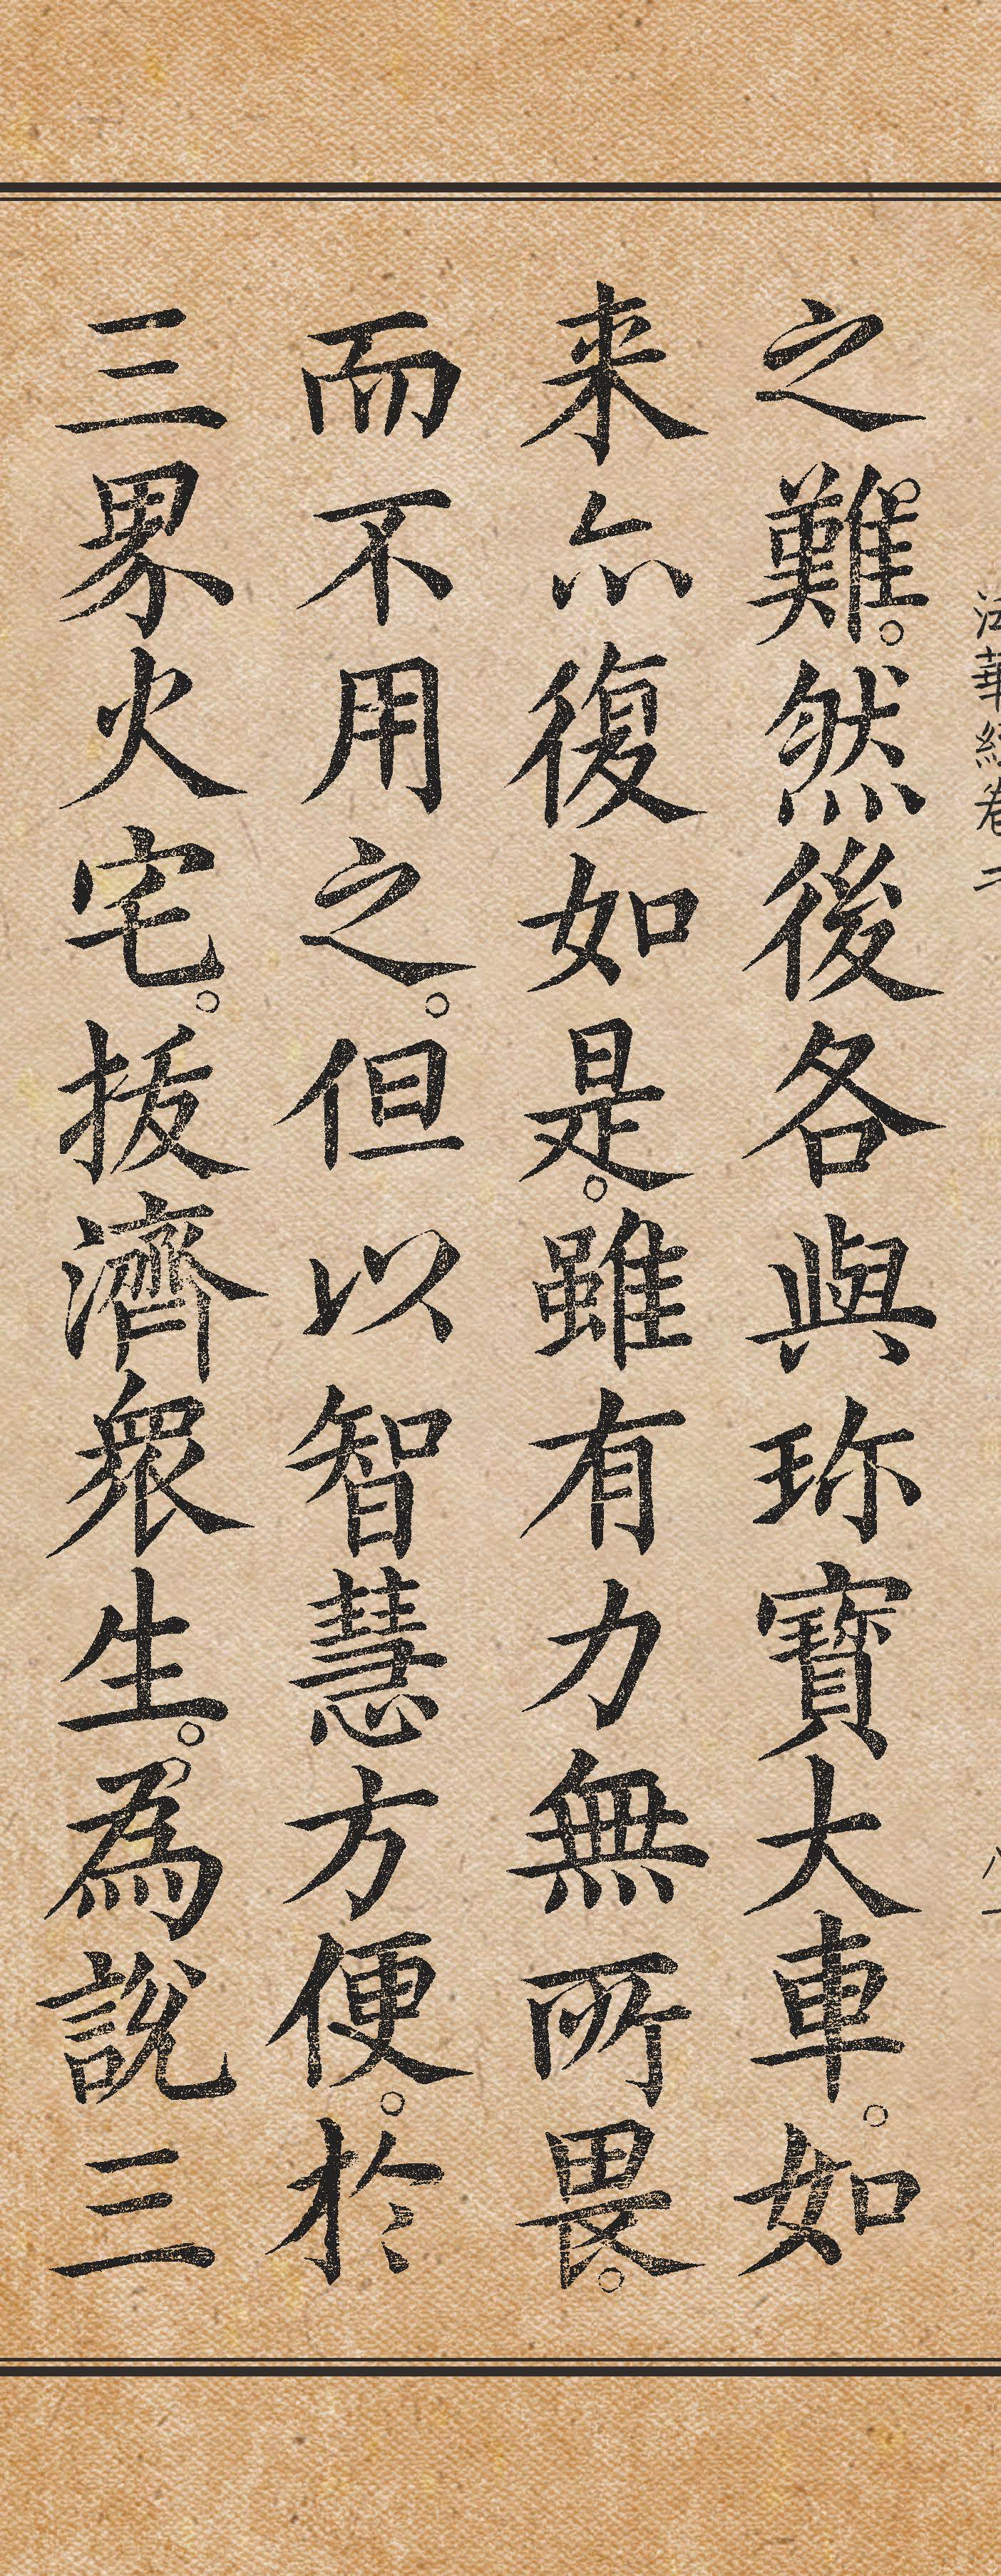 法華經卷二
之難。然後各與珎寶大車。如
来亦復如是。雖有力無所畏。
而不用之。但以智慧方便。於
三界火宅。拔濟衆生。為說三